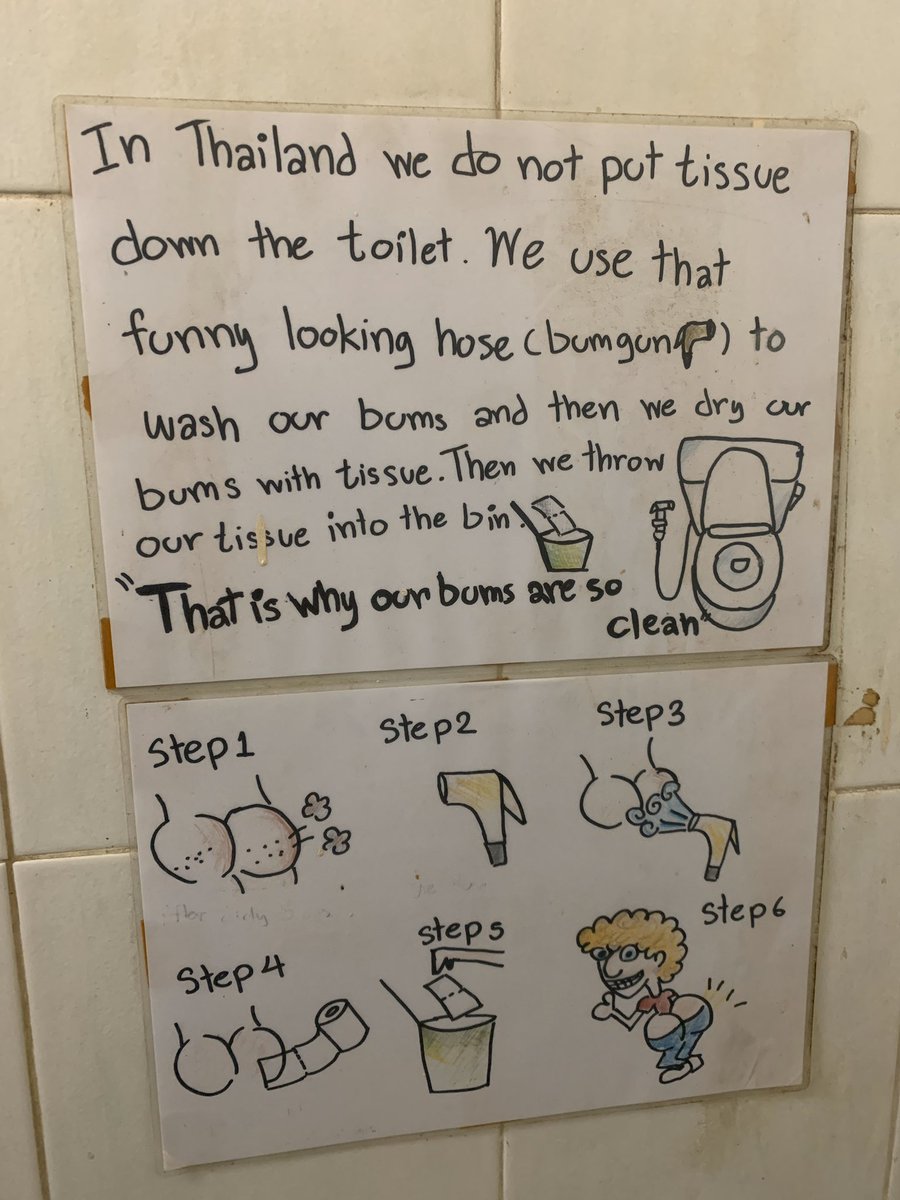 In Thailand we do not put tissue
down the toilet. We use that
funny looking hose (bumgun) to
wash our bums and then we dry our
bums with tissue. Then we throw
our tissue into the bin.
"That is why our bums are so
clean"
Step 1
Step 2
Step 3
Step 4
Step 5
Step 6